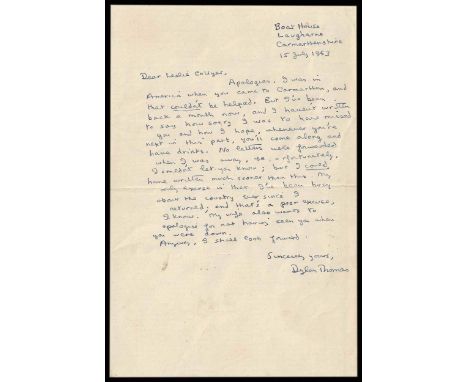 Boat House
Laugharne
Carmarthenshire
15 July 1953
Dear Leslie Collyer,
Apologies. I was in
America when you came to Carmarthen, and
that couldn't be helped. But I've been
back a month now, and I haven't written
to say how sorry I was to have missed
you and how I hope, whenever you're
next in this part, you'll come along and
have drinks. No letters were forwarded
when I was away, so, unfortunately,
I couldn't let you know; but I could
have written much sooner than this. My
only excuse is that I've been busy
about the country ever since I
returned; and that's a poor excuse,
I know. My wife also wants to
apologise for not having seen you when
you were down.
Anyway, I shall look forward.
Sincerely yours,
Dylan Thomas